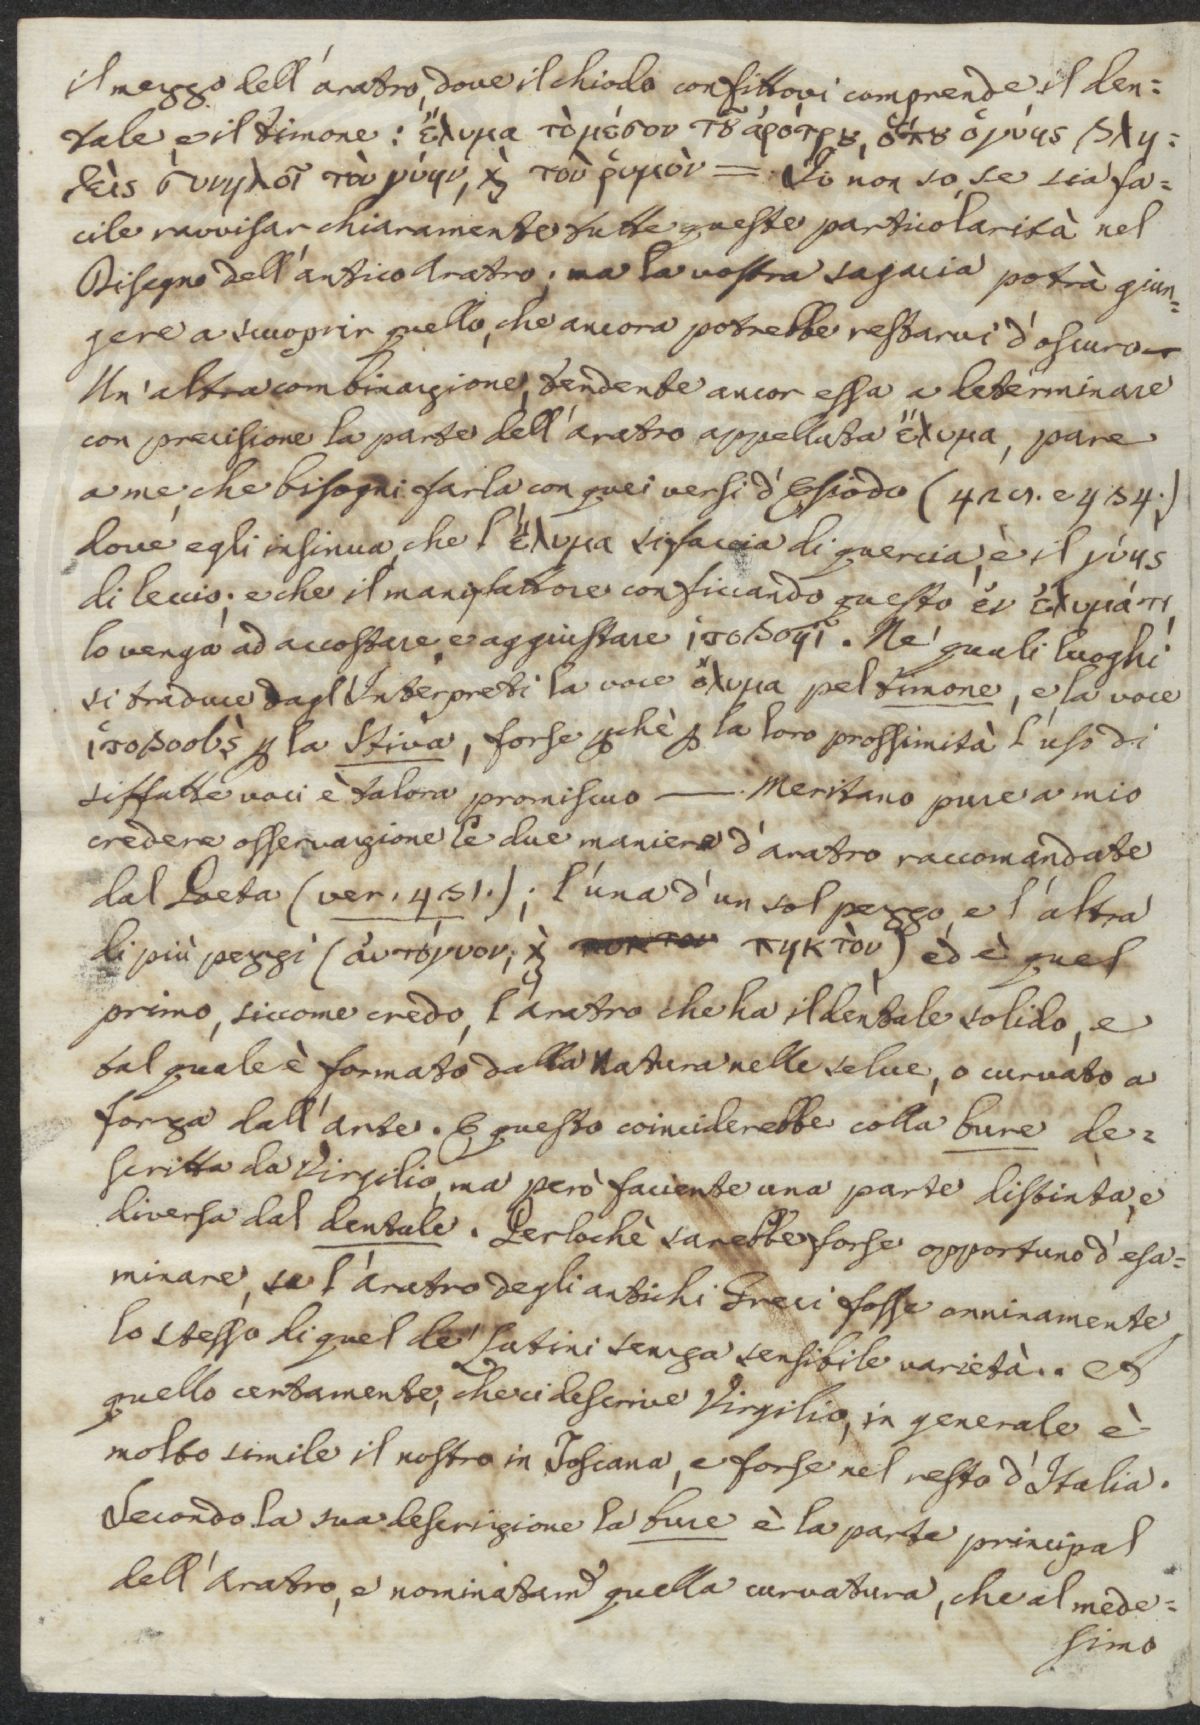 il mezzo dell'aratro, dove il chiodo confittovi comprende il den=
tale, e il timone: ἔλυμα τὸ μέσον τοῦ ἀρότρου, ὅπου ὁ γύης βλη=
θεὶς συνηλοῖ τὸν γύην, καὶ τὸν ῥυμὸν = Io non so, se sia fa=
cile ravvisar chiaramente tutte queste particolarità nel
Disegno dell'antico Aratro; ma la vostra sagacia potrà giun=
gere a scuoprir quello, che ancora potrebbe restarvi d'oscuro —
Un'altra combinazione, tendente ancor essa a determinare
con precisione la parte dell'aratro appellata ἔλυμα, pare
a me, che bisogni farla con quei versi d'Esiodo (429. e 434.)
dove egli insinua, che l'ἔλυμα si faccia di quercia, e il γύης
di leccio; e che il manifattore conficcando questo ἐν ἐλύματι,
lo venga ad accostare, e aggiustare ἱστοβοῆϊ. Ne' quali luoghi
si traduce dagl'Interpreti la voce ἔλυμα pel timone, e la voce
ἱστοβοεὺς ꝑ la Stiva, forse ꝑchè ꝑ la loro prossimità l'uso di
siffatte voci è talora promiscuo — Meritano pure a mio
credere osservazione le due maniere d'aratro raccomandate
dal Poeta (ver. 431.); l'una d'un sol pezzo, e l'altra
di più pezzi (ἀυτόγυον, καὶ πηκτὸν) ed è quel
primo, siccome credo, l'aratro che ha il dentale solido, e
tal quale è formato dalla Natura nelle selve, o curvato a
forza dall'arte. E questo coinciderebbe colla bure de=
scritta da Virgilio, ma però faciente una parte distinta, e
diversa dal dentale. Perlochè sarebbe forse opportuno d'esa=
minare, se l'aratro degli antichi Greci fosse onninamente
lo stesso di quel de' Latini senza sensibile varietà.. A
quello certamente, che ci descrive Virgilio, in generale è
molto simile il nostro in Toscana, e forse nel resto d'Italia.
Secondo la sua descrizione la bure è la parte principal
dell'Aratro, e nominatamᵉ quella curvatura, che al mede=
simo